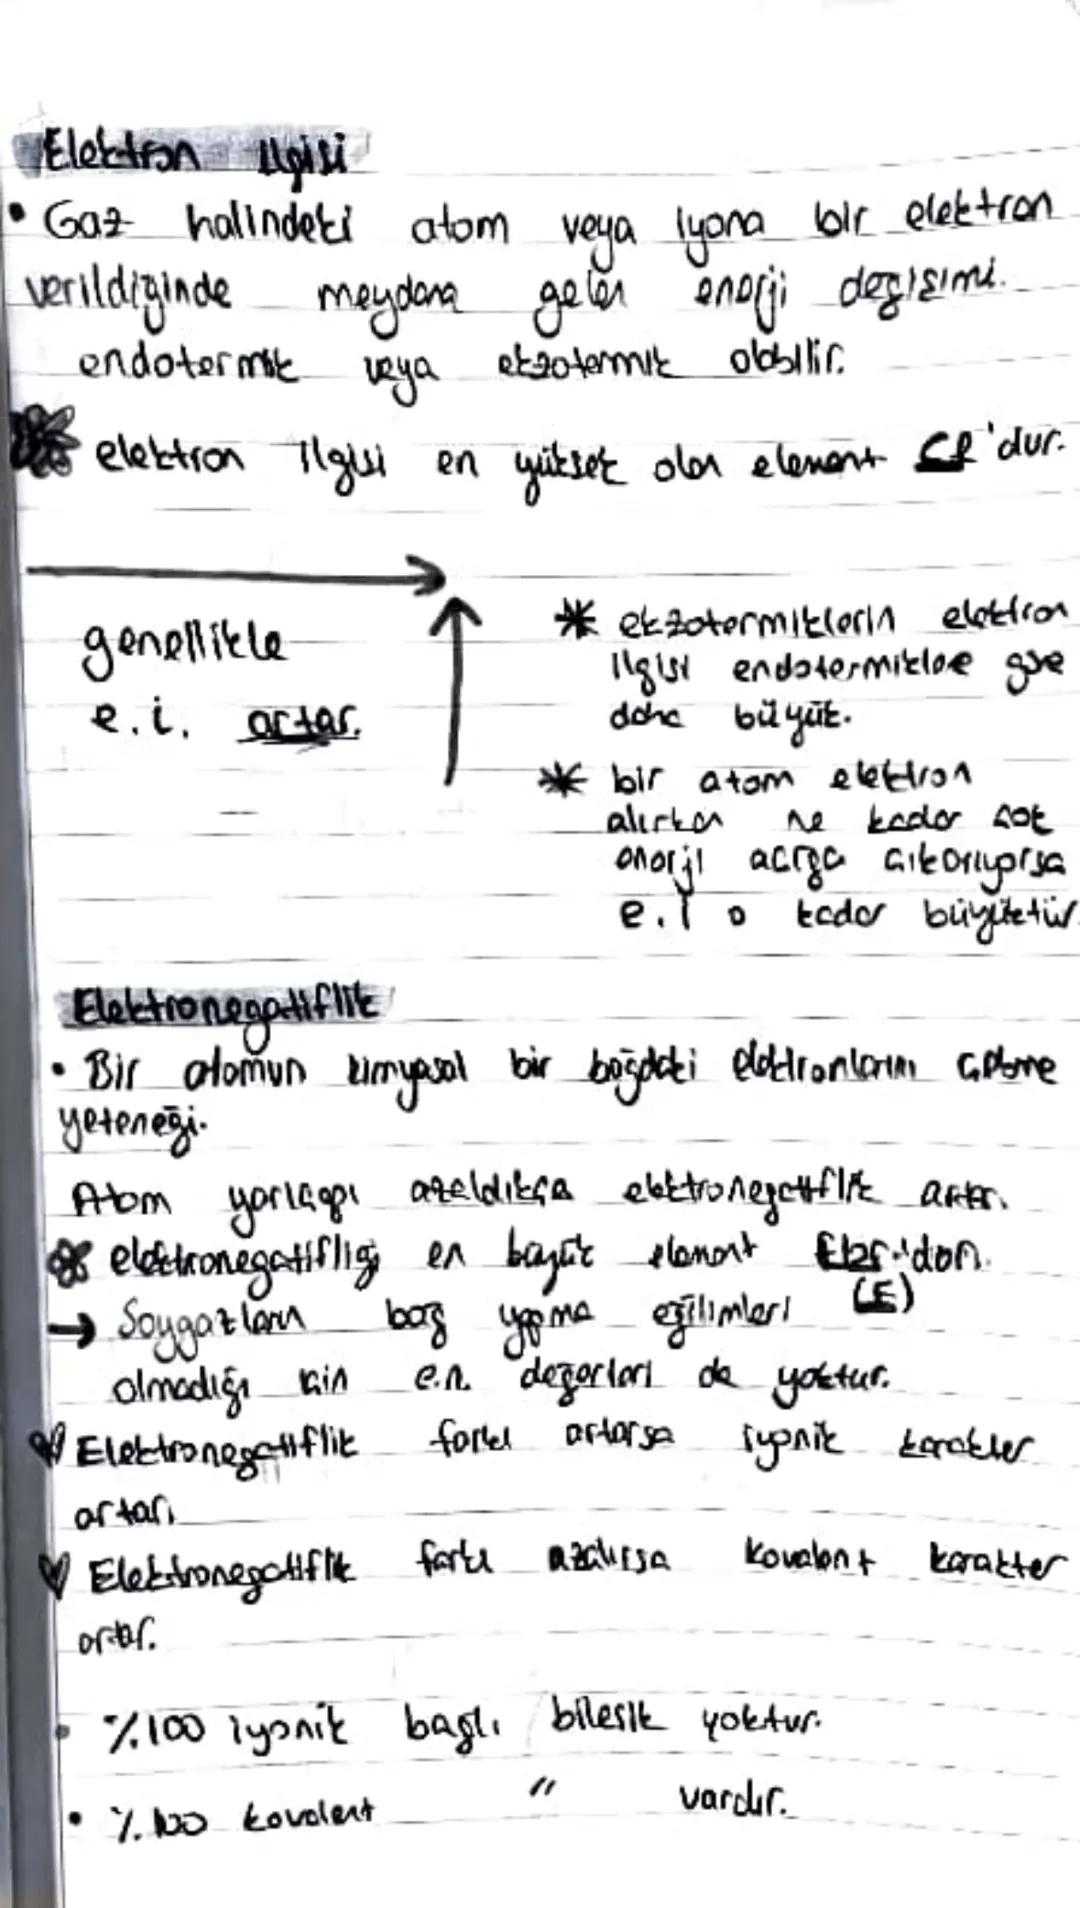 Elektron ilgisi
• Gaz halindeki atom veya iyona bir elektron
verildiğinde meydana gelen enerji değişimi.
endotermik veya ekzotermik olabilir.
elektron ilgisi en yüksek olan element Cl'dur.
genellikle
e.i. artar.
* ekzotermiklerin elektron
ilgisi endotermiklere göre
daha büyük.
* bir atom elektron
alırken ne kadar çok
enerji açığa çıkarıyorsa
e.i o kadar büyüktür.
Elektronegatiflik
• Bir atomun kimyasal bir bağdaki elektronlarını çekme
yeteneği.
Atom yarıçapı azaldıkça elektronegatiflik artar.
elektronegatifliği en büyük element
(F)
→ Soygazların bağ yapma eğilimleri
olmadığı için e.n. değerleri de yoktur.
Elektronegatiflik farkı artarsa iyonik karakter
artar.
♡ Elektronegatiflik farkı azalırsa kovalent karakter
artar.
• %100 iyonik bağlı bileşik yoktur.
• %100 kovalent " vardır.